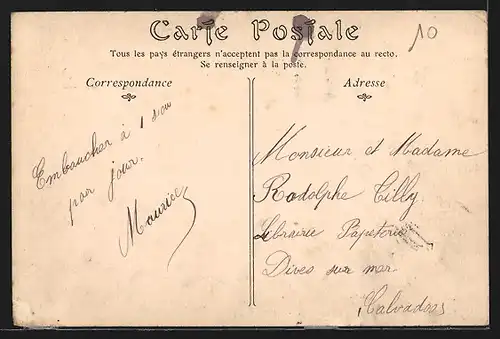 Carte Postale
10
Tous les pays étrangers n'acceptent pas la correspondance au recto.
Se renseigner à la poste.
Correspondance
Adresse
Embaucher à 1 sou
par jour.
Maurice
Monsieur et Madame
Rodolphe Tilly
Librairie Papeterie
Dives sur mer
Calvados